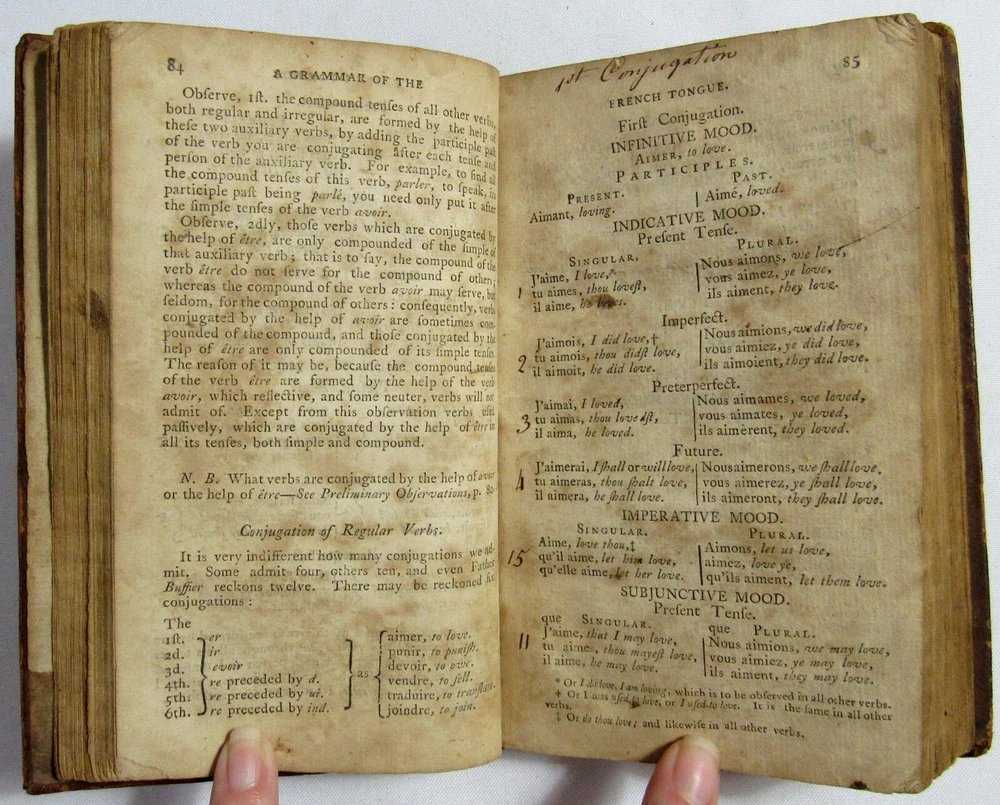 84
A GRAMMAR OF THE
Obſerve, 1ſt. the compound tenſes of all other verbs,
both regular and irregular, are formed by the help of
theſe two auxiliary verbs, by adding the participle paſt
of the verb you are conjugating after each tenſe and
perſon of the auxiliary verb. For example, to find all
the compound tenſes of this verb, parler, to ſpeak, its
participle paſt being parlé, you need only put it after
the ſimple tenſes of the verb avoir.
Obſerve, 2dly, thoſe verbs which are conjugated by
the help of être, are only compounded of the ſimple of
that auxiliary verb; that is to ſay, the compound of the
verb être do not ſerve for the compound of others;
whereas the compound of the verb avoir may ſerve, but
ſeldom, for the compound of others: conſequently, verbs
conjugated by the help of avoir are ſometimes com-
pounded of the compound, and thoſe conjugated by the
help of être are only compounded of its ſimple tenſes.
The reaſon of it may be, becauſe the compound tenſes
of the verb être are formed by the help of the verb
avoir, which reflective, and ſome neuter, verbs will not
admit of. Except from this obſervation verbs uſed
paſſively, which are conjugated by the help of être in
all its tenſes, both ſimple and compound.
N. B. What verbs are conjugated by the help of avoir
or the help of être—See Preliminary Obſervations, p. 80.
Conjugation of Regular Verbs.
It is very indifferent how many conjugations we ad-
mit. Some admit four, others ten, and even Father
Buffier reckons twelve. There may be reckoned ſix
conjugations:
The
1ſt. } er { aimer, to love.
2d. } ir { punir, to puniſh.
3d. } evoir } as { devoir, to owe.
4th. } re preceded by d. { vendre, to ſell.
5th. } re preceded by ui. { traduire, to tranſlate.
6th. } re preceded by ind. { joindre, to join.
1st Conjugation
85
FRENCH TONGUE.
Firſt Conjugation.
INFINITIVE MOOD.
AIMER, to love.
PARTICIPLES.
PRESENT. PAST.
Aimant, loving. | Aimé, loved.
INDICATIVE MOOD.
Preſent Tenſe.
SINGULAR. PLURAL.
1 J'aime, I love,* | Nous aimons, we love,
tu aimes, thou loveſt, | vous aimez, ye love,
il aime, he loves. | ils aiment, they love.
Imperfect.
J'aimois, I did love,† | Nous aimions, we did love,
2 tu aimois, thou didſt love, | vous aimiez, ye did love,
il aimoit, he did love. | ils aimoient, they did love.
Preterperfect.
J'aimai, I loved, | Nous aimames, we loved,
3 tu aimas, thou lovedſt, | vous aimates, ye loved,
il aima, he loved. | ils aimèrent, they loved.
Future.
J'aimerai, I ſhall or will love, | Nous aimerons, we ſhall love,
4 tu aimeras, thou ſhalt love, | vous aimerez, ye ſhall love,
il aimera, he ſhall love. | ils aimeront, they ſhall love.
IMPERATIVE MOOD.
SINGULAR. PLURAL.
Aime, love thou,‡ | Aimons, let us love,
15 qu'il aime, let him love, | aimez, love ye,
qu'elle aime, let her love. | qu'ils aiment, let them love.
SUBJUNCTIVE MOOD.
Preſent Tenſe.
que SINGULAR. que PLURAL.
11 J'aime, that I may love, | Nous aimions, we may love,
tu aimes, thou mayeſt love, | vous aimiez, ye may love,
il aime, he may love. | ils aiment, they may love.
* Or I do love, I am loving, which is to be obſerved in all other verbs.
† Or I was uſed to love, or I uſed to love. It is the ſame in all other
verbs.
‡ Or do thou love; and likewiſe in all other verbs.